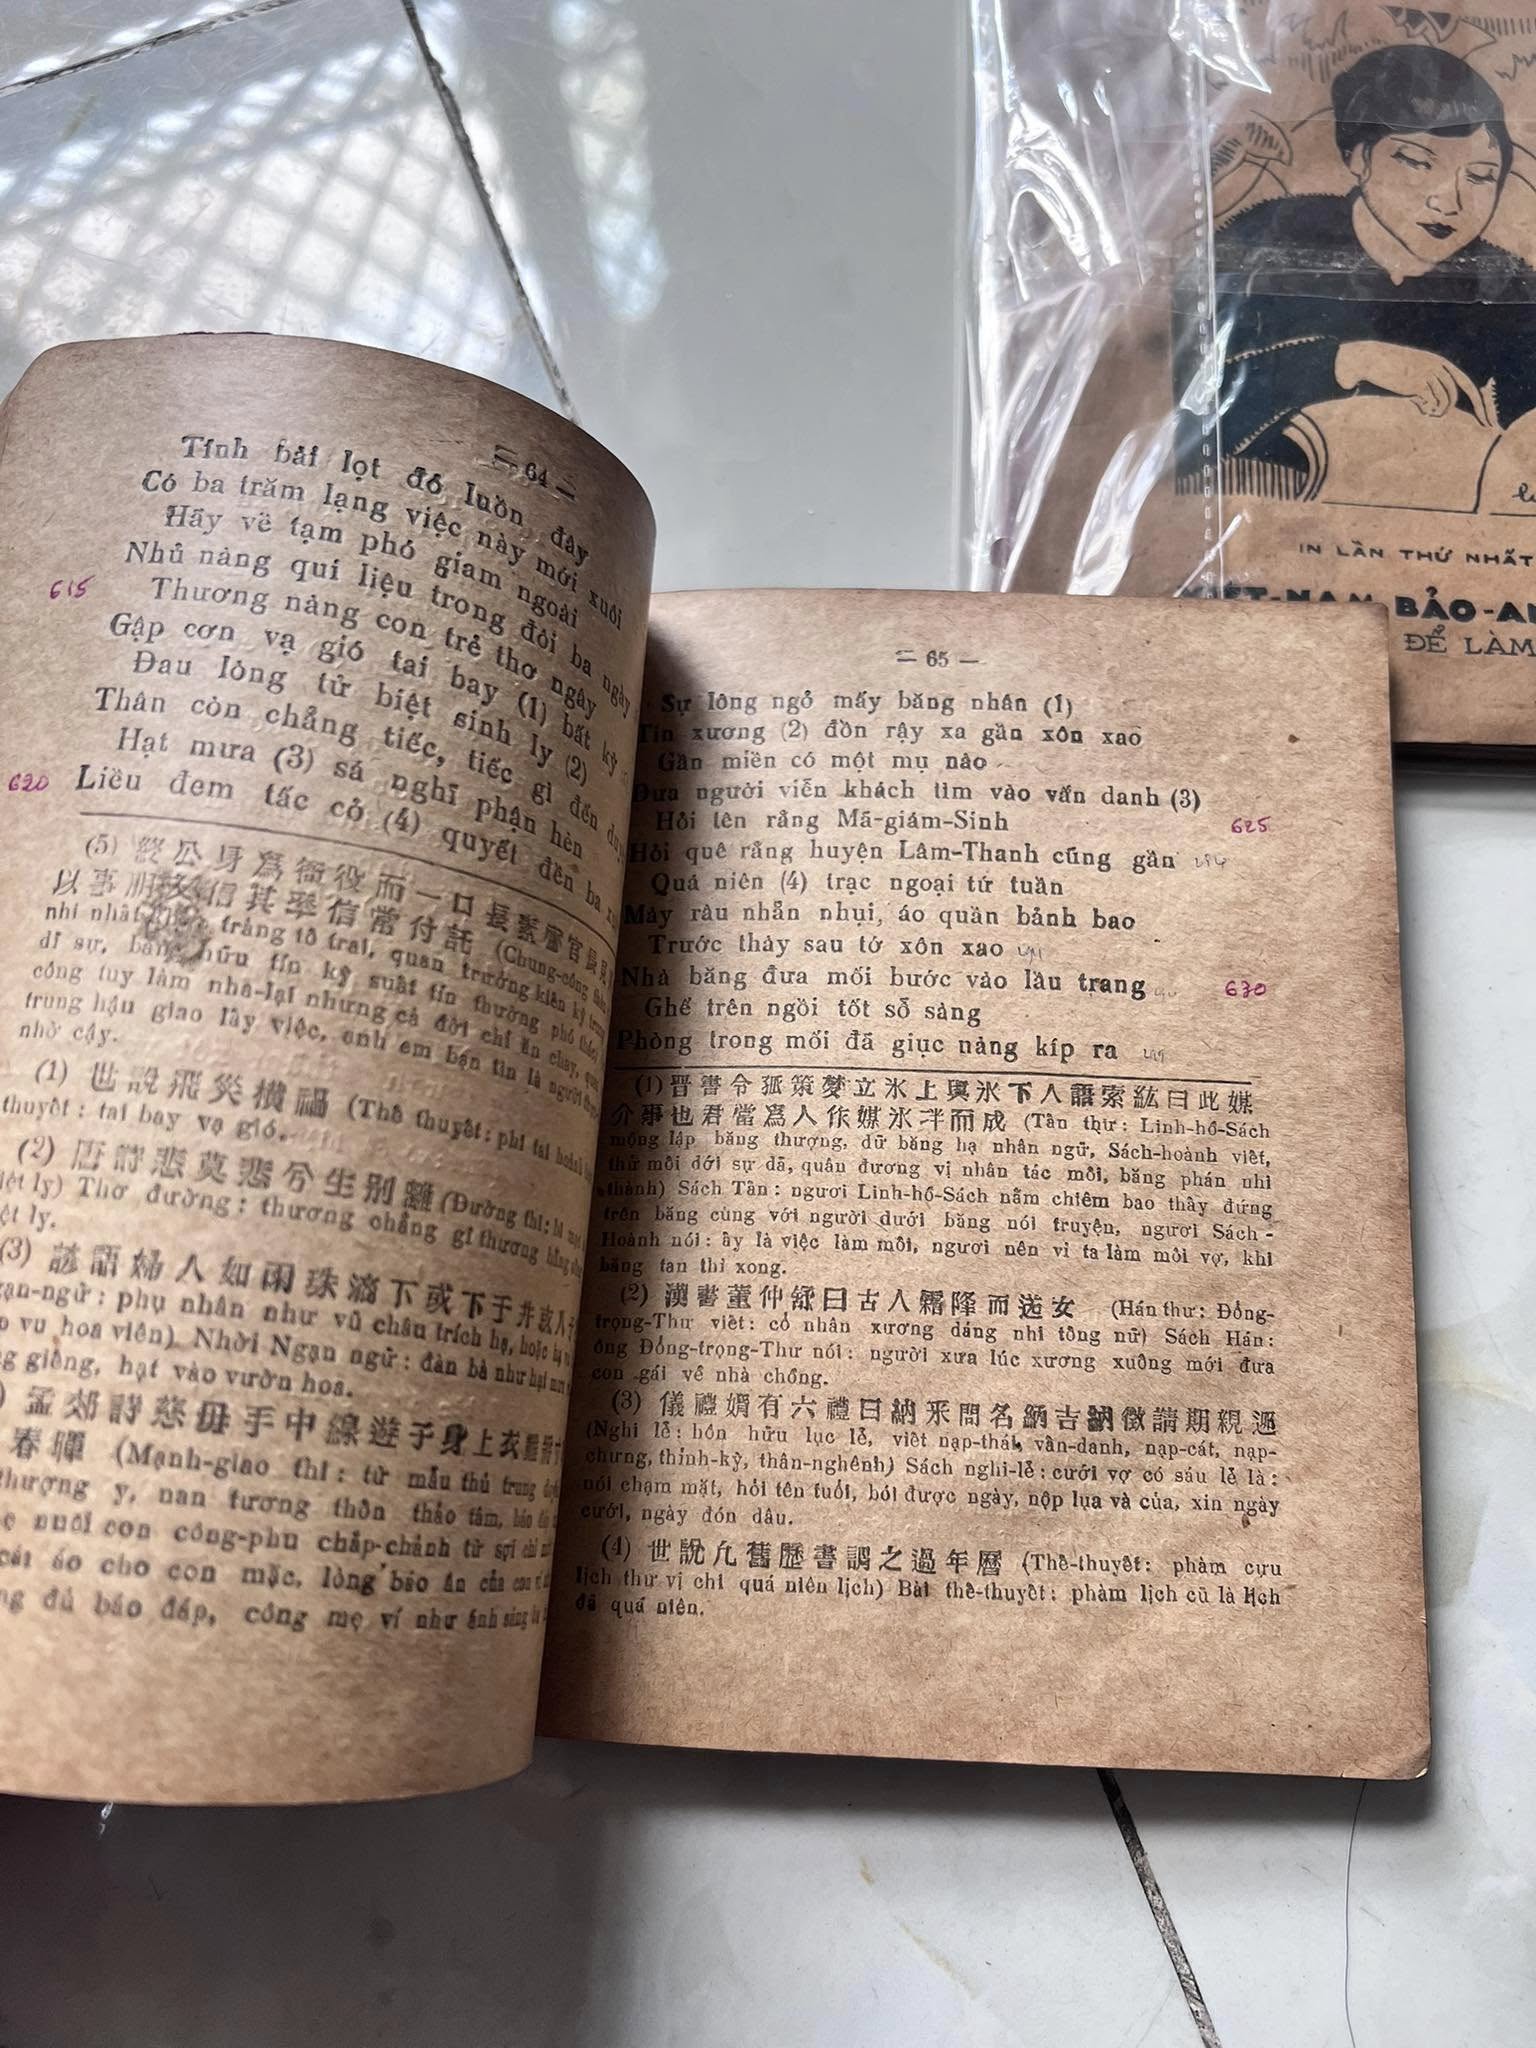 — 64 —
Tính bài lọt đó luồn đây
Có ba trăm lạng việc này mới xuôi
Hãy về tạm phó giam ngoài
Nhủ nàng qui liệu trong đôi ba ngày
615
Thương nàng con trẻ thơ ngây
Gặp cơn vạ gió tai bay (1) bất kỳ
Đau lòng tử biệt sinh ly (2)
Thân còn chẳng tiếc, tiếc gì đến duyên
Hạt mưa (3) sá nghĩ phận hèn
620
Liều đem tấc cỏ (4) quyết đền ba
(5) 終公身爲衙役而一口長素
以事 信其率信常付託 (Chung-công thân
nhi nhất trảng tố trai, quan trưởng kiến kỳ trung
dĩ sự, bằng hữu tín kỳ suất tín thường phó
công tuy làm nha-lại nhưng cả đời chỉ ăn chay, quan
trung hậu giao lấy việc, anh em bạn tin là người
nhờ cậy.
(1) 世說飛災橫禍 (Thế thuyết: phi tai hoành
thuyết: tai bay vạ gió.
(2) 唐詩悲莫悲兮生別離 (Đường thi: bi mạc
biệt ly) Thơ đường: thương chẳng gì thương bằng
ly.
(3) 諺語婦人如雨珠滴下或下于井
ngữ: phụ nhân như vũ châu trích hạ, hoặc hạ vu
vu hoa viên) Nhời Ngạn ngữ: đàn bà như hạt mưa
giếng, hạt vào vườn hoa.
孟郊詩慈母手中線遊子身上衣
春暉 (Mạnh-giao thi: từ mẫu thủ trung
thượng y, nan tương thốn thảo tâm, báo
nuôi con công-phu chắp-chảnh từ sợi chỉ
cái áo cho con mặc, lòng báo ân của con
đủ báo đáp, công mẹ ví như ánh sáng
— 65 —
Sự lòng ngỏ mấy băng nhân (1)
Tin xương (2) đồn rậy xa gần xôn xao
Gần miền có một mụ nào
Đưa người viễn khách tìm vào vấn danh (3)
Hỏi tên rằng Mã-giám-Sinh
625
Hỏi quê rằng huyện Lâm-Thanh cũng gần
Quá niên (4) trạc ngoại tứ tuần
Mày râu nhẵn nhụi, áo quần bảnh bao
Trước thày sau tớ xôn xao
Nhà băng đưa mối bước vào lầu trang
630
Ghế trên ngồi tót sỗ sàng
Phòng trong mối đã giục nàng kíp ra
(1) 晋書令狐策夢立氷上與氷下人語索紞曰此媒
介事也君當爲人作媒氷泮而成 (Tân thư: Linh-hồ-Sách
mộng lập băng thượng, dữ băng hạ nhân ngữ, Sách-hoành viết,
thử môi dới sự dã, quân đương vị nhân tác môi, băng phán nhi
thành) Sách Tân: ngươi Linh-hồ-Sách nằm chiêm bao thấy đứng
trên băng cùng với người dưới băng nói truyện, ngươi Sách-
Hoành nói: ấy là việc làm môi, ngươi nên vì ta làm môi vợ, khi
băng tan thì xong.
(2) 漢書董仲舒曰古人霜降而送女 (Hán thư: Đổng-
trọng-Thư viết: cổ nhân xương dáng nhi tống nữ) Sách Hán:
ông Đổng-trọng-Thư nói: người xưa lúc xương xuống mới đưa
con gái về nhà chồng.
(3) 儀禮婚有六禮曰納采問名納吉納徵請期親迎
(Nghi lễ: hôn hữu lục lễ, viết nạp-thái, vấn-danh, nạp-cát, nạp-
chưng, thỉnh-kỳ, thân-nghênh) Sách nghi-lễ: cưới vợ có sáu lễ là:
nói chạm mặt, hỏi tên tuổi, bói được ngày, nộp lụa và của, xin ngày
cưới, ngày đón dâu.
(4) 世說凡舊歷書謂之過年曆 (Thế-thuyết: phàm cựu
lịch thư vị chi quá niên lịch) Bài thế-thuyết: phàm lịch cũ là lịch
đã quá niên.
IN LẦN THỨ NHẤT
VIỆT-NAM BẢO-
ĐỂ LÀM